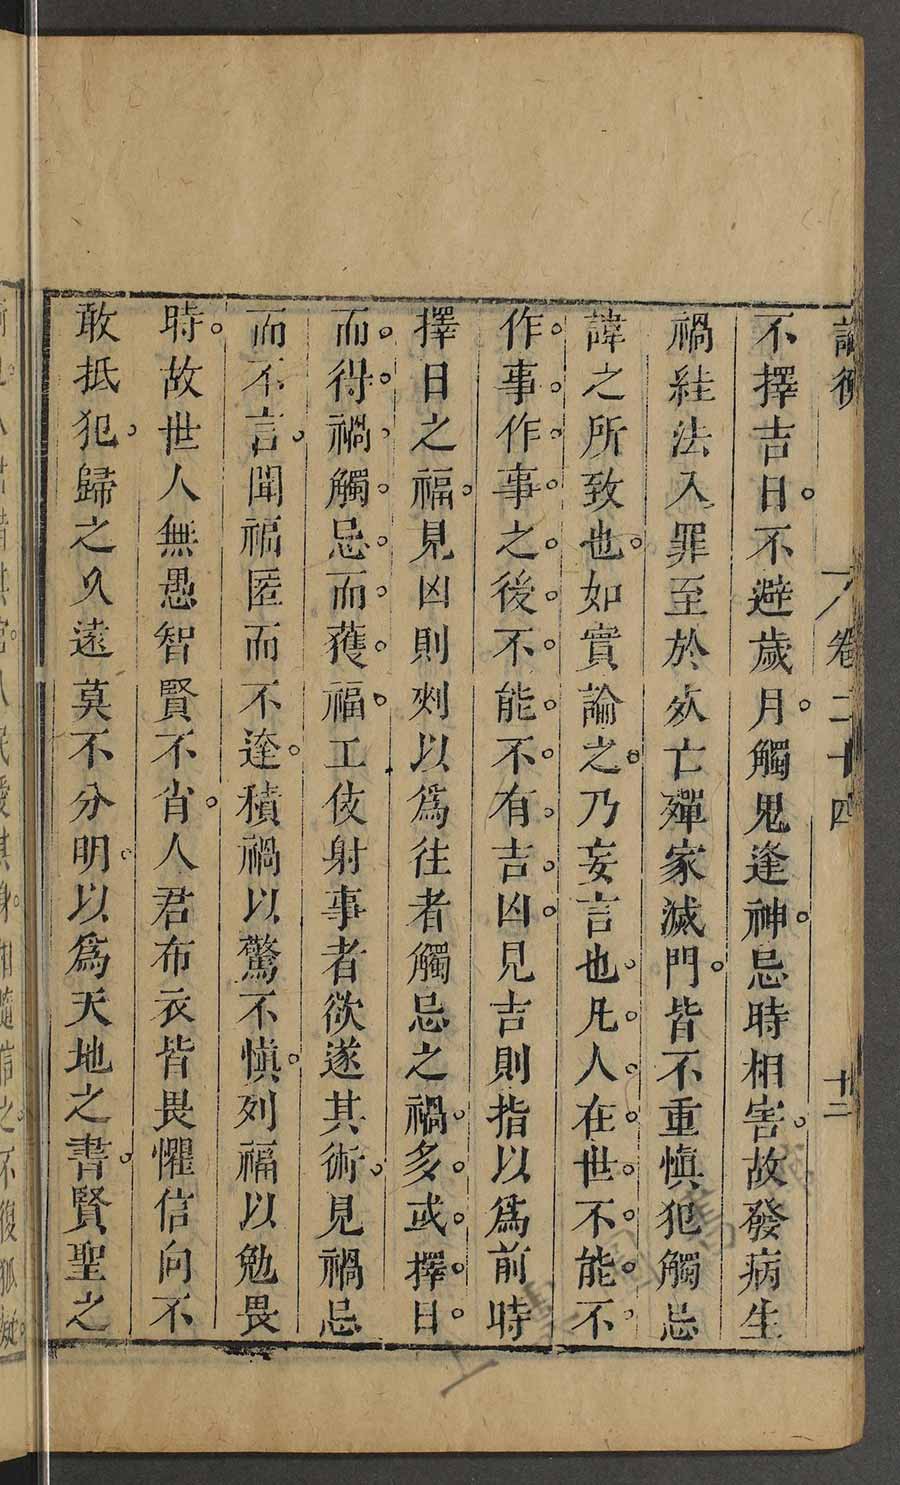 論衡 卷二十四 十二
不擇吉日。不避歲月。觸鬼逢神。忌時相害。故發病生
禍絓法入罪至於死亡殫家滅門。皆不重慎犯觸忌
諱之所致也。如實論之。乃妄言也。凡人在世。不能不
作事。作事之後。不能不有吉凶。見吉則指以為前時
擇日之福。見凶則刾以為往者觸忌之禍。多或擇日
而得禍。觸忌而獲福。工伎射事者欲遂其術。見禍忌
而不言。聞福匿而不達。積禍以驚不慎。列福以勉畏
時。故世人無愚智賢不肖。人君布衣皆畏懼信向不
敢抵犯。歸之久遠莫不分明。以為天地之書。賢聖之